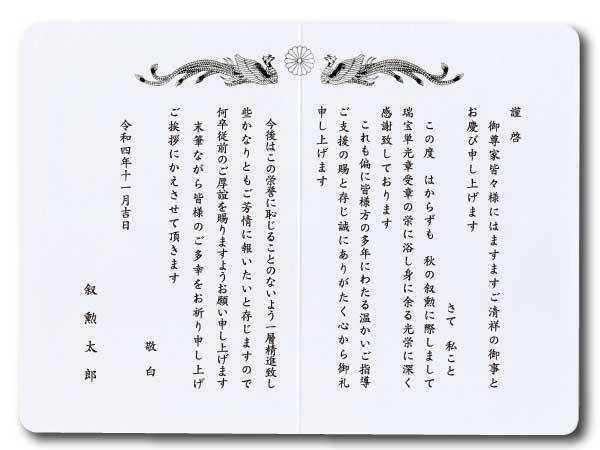 謹啓
御尊家皆々様にはますますご清祥の御事と
お慶び申し上げます
さて 私こと
この度 はからずも 秋の叙勲に際しまして
瑞宝単光章受章の栄に浴し身に余る光栄に深く
感謝致しております
これも偏に皆様方の多年にわたる温かいご指導
ご支援の賜と存じ誠にありがたく心から御礼
申し上げます
今後はこの栄誉に恥じることのないよう一層精進致し
些かなりともご芳情に報いたいと存じますので
何卒従前のご厚誼を賜りますようお願い申し上げます
末筆ながら皆様のご多幸をお祈り申し上げ
ご挨拶にかえさせて頂きます
敬白
令和四年十一月吉日
叙勲太郎